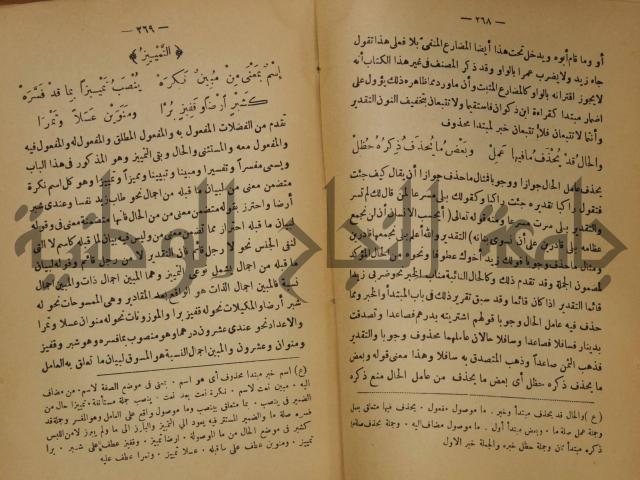 — ٢٦٨ —
أو وما قام أبوه ويدخل تحت هذا أيضا المضارع المنفى بلا فعلى هذا تقول
جاء زيد ولا يضرب عمرا بالواو وقد ذكر المصنف فى غير هذا الكتاب أنه
لا يجوز اقترانه بالواو كالمضارع المثبت وأن ما ورد مما ظاهره ذلك يؤول على
اضمار مبتدا كقراءة ابن ذكوان فاستقيما ولا تتبعان بتخفيف النون التقدير
وأنتما لا تتبعان فلا تتبعان خبر لمبتدا محذوف
والحال قد يحذف ما فيها عمل وبعض ما يحذف ذكره حظل
يحذف عامل الحال جوازا ووجوبا فمثال ما حذف جوازا أن يقال كيف جئت
فتقول راكبا تقديره جئت راكبا وكقولك بلى مسرعا لمن قال لك لم تسر
والتقدير بلى سرت مسرعا ومنه قوله تعالى (أيحسب الانسان أن لن نجمع
عظامه بلى قادرين على أن نسوى بنانه) التقدير والله أعلم بلى نجمعها قادرين
ومثال ما حذف وجوبا قولك زيد أخوك عطوفا ونحوه من الحال المؤكدة
لمضمون الجملة وقد تقدم ذلك وكالحال النائبة مناب الخبر نحو ضربى زيدا
قائما التقدير اذا كان قائما وقد سبق تقرير ذلك فى باب المبتدأ والخبر ومما
حذف فيه عامل الحال وجوبا قولهم اشتريته بدرهم فصاعدا وتصدقت
بدينار فسافلا فصاعدا وسافلا حالان عاملهما محذوف وجوبا والتقدير
فذهب الثمن صاعدا وذهب المتصدق به سافلا وهذا معنى قوله وبعض
ما يحذف ذكره حظل أى بعض ما يحذف من عامل الحال منع ذكره
(ع) والحال قد يحذف مبتدأ وخبر . ما موصول مفعول . يحذف فيها متعلق بعمل
وجملة عمل صلة ما . وبعض مبتدأ أول . ما موصول مضاف اليه . وجملة يحذف صلة ما
ذكره مبتدأ ثان وجملة حظل خبره والجملة خبر الاول
— ٢٦٩ —
﴿ التمييز ﴾
إسم بمعنى من مبين نكره ينصب تمييزا بما قد فسره
كشبر أرضا وقفيز برا ومنوين عسلا وتمرا
تقدم من الفضلات المفعول به والمفعول المطلق والمفعول له والمفعول فيه
والمفعول معه والمستثنى والحال وبقى التمييز وهو المذكور فى هذا الباب
ويسمى مفسرا وتفسيرا ومبينا وتبيينا ومميزا وتمييزا وهو كل اسم نكرة
متضمن معنى من لبيان ما قبله من اجمال نحو طاب زيد نفسا وعندى شبر
أرضا واحترز بقوله متضمن معنى من من الحال فانها متضمنة معنى فى وقوله
لبيان ما قبله احتراز مما تضمن معنى من وليس فيه بيان لما قبله كاسم لا التى
لنفى الجنس نحو لا رجل قائم فان التقدير لا من رجل قائم وقوله لبيان
ما قبله من اجمال يشمل نوعى التمييز وهما المبين اجمال ذات والمبين اجمال
نسبة فالمبين اجمال الذات هو الواقع بعد المقادير وهى الممسوحات نحو له
شبر أرضا والمكيلات نحو له قفيز برا والموزونات نحو له منوان عسلا وتمرا
والاعداد نحو عندى عشرون درهما وهو منصوب بما فسره وهو شبر وقفيز
ومنوان وعشرون والمبين اجمال النسبة هو المسوق لبيان ما تعلق به العامل
(ع) اسم خبر مبتدا محذوف أى هو اسم . بمعنى فى موضع الصفة لاسم . من مضاف
اليه . مبين نعت لاسم . نكرة نعت بعد نعت . ينصب جملة مستأنفة . تمييزا حال من
الضمير فى ينصب . بما متعلق بينصب وما موصول واقع على العامل وهو المفسر وجملة قد
فسره صلة ما والضمير المستتر فيه يعود الى التمييز والبارز الى ما ولم يبرز لامن اللبس
كشبر فى موضع الحال من ما الموصولة . أرضا تمييز . وقفيز عطف على شبر . برا
تمييز . ومنوين عطف على ما قبله . عسلا تمييز . وتمرا عطف عليه